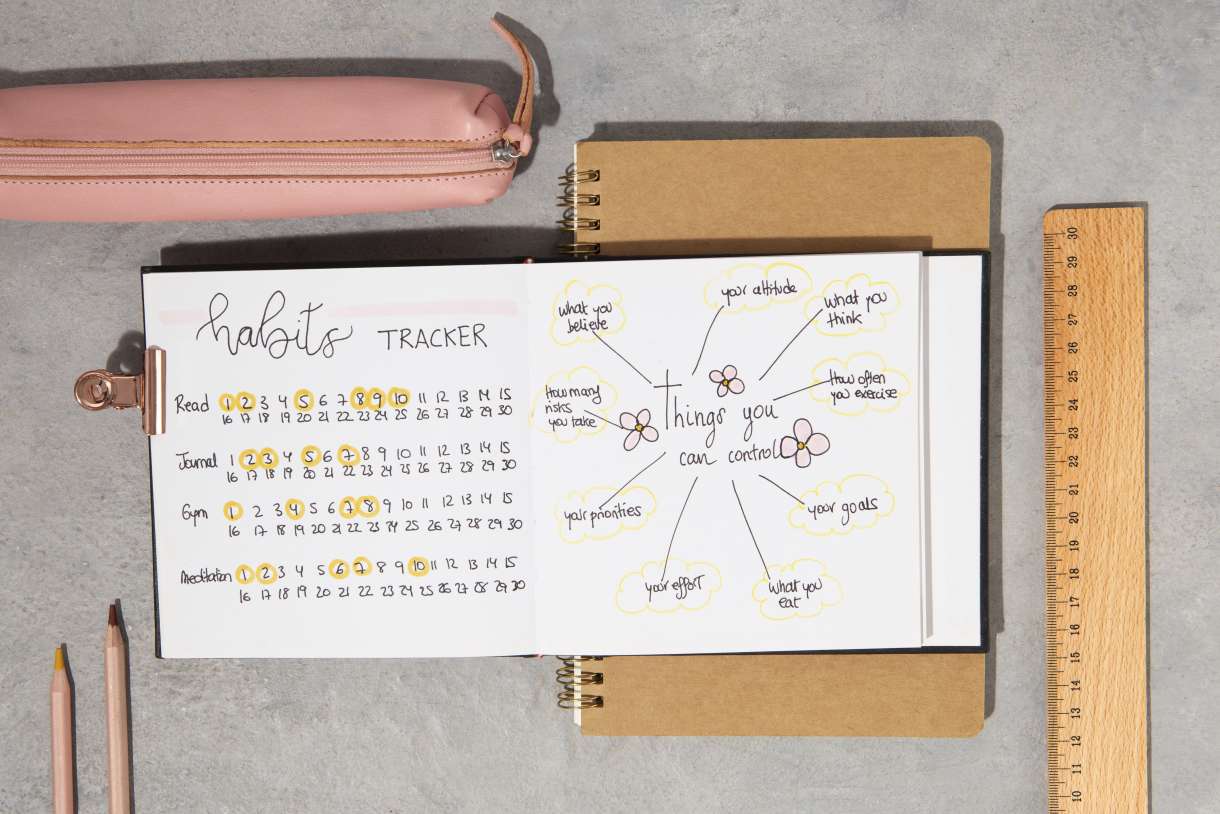 habits TRACKER
Read 1 2 3 4 5 6 7 8 9 10 11 12 13 14 15
16 17 18 19 20 21 22 23 24 25 26 27 28 29 30
Journal 1 2 3 4 5 6 7 8 9 10 11 12 13 14 15
16 17 18 19 20 21 22 23 24 25 26 27 28 29 30
Gym 1 2 3 4 5 6 7 8 9 10 11 12 13 14 15
16 17 18 19 20 21 22 23 24 25 26 27 28 29 30
Meditation 1 2 3 4 5 6 7 8 9 10 11 12 13 14 15
16 17 18 19 20 21 22 23 24 25 26 27 28 29 30
what you
believe
your altitude
What you
think
How many
risks
you take
How often
you exercise
Things you
can control
your priorities
your goals
your effort
what you
eat
30
29
28
27
26
25
24
23
22
21
20
19
18
17
16
15
14
13
12
11
10